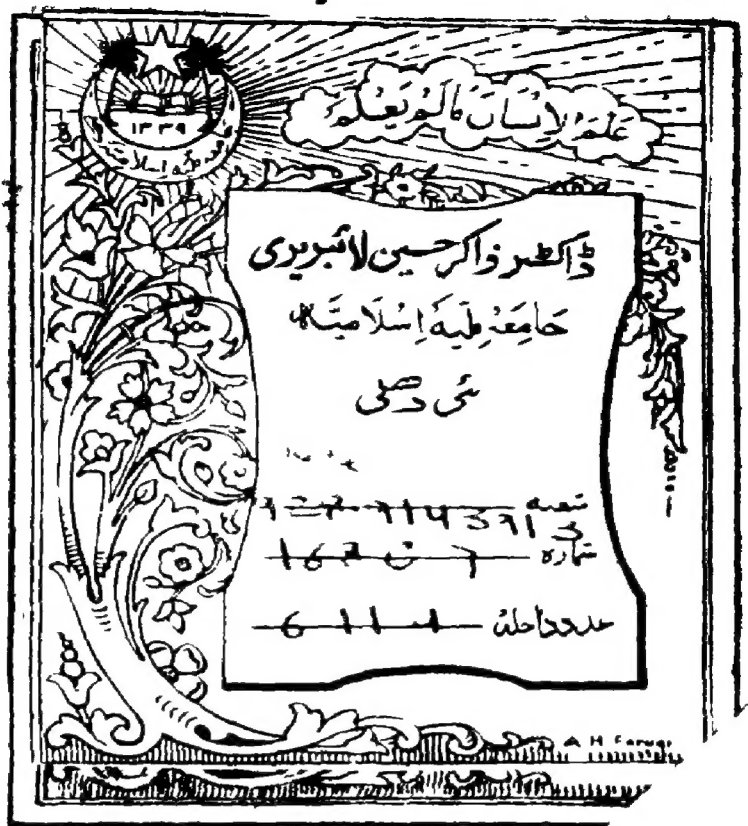 ۱۳۳۹
عَلَّمَ الْاِنْسَانَ مَالَمْ يَعْلَمْ
ڈاکٹر ذاکر حسین لائبریری
جَامِعَہ مِلّیہ اِسْلَامیَہ
نئی دھلی
شعبہ
شمارہ 168
عدد داخلہ 6111
A H Faruqi